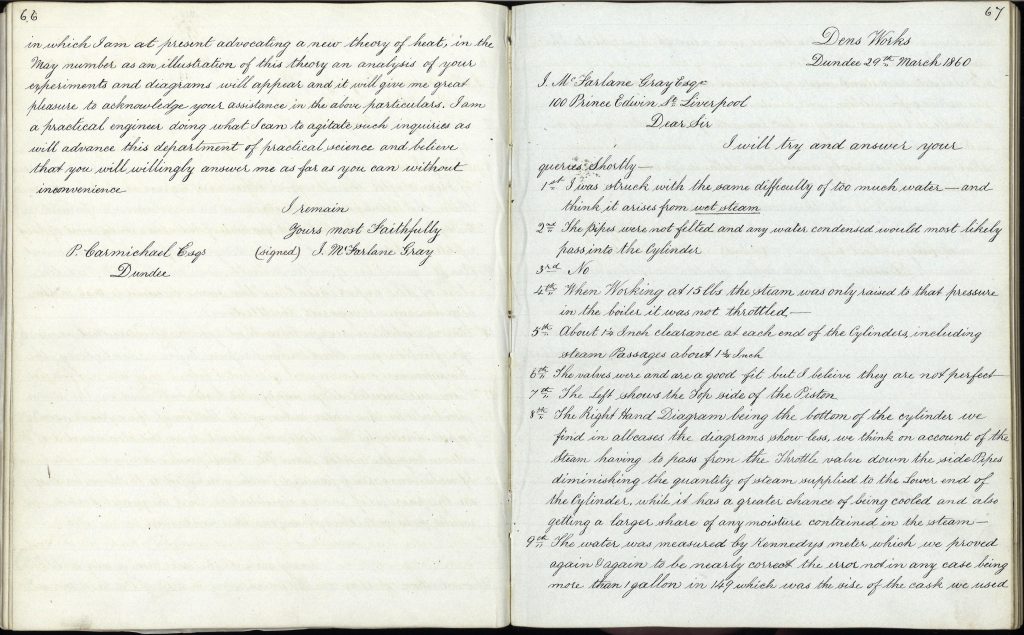 66
in which I am at present advocating a new theory of heat, in the
May number as an illustration of this theory an analysis of your
experiments and diagrams will appear and it will give me great
pleasure to acknowledge your assistance in the above particulars. I am
a practical engineer doing what I can to agitate such inquiries as
will advance this department of practical science and believe
that you will willingly answer me as far as you can without
inconvenience
I remain
Yours most Faithfully
P. Carmichael Esqr (signed) J. McFarlane Gray
Dundee
67
Dens Works
Dundee 29th March 1860
J. McFarlane Gray Esqr
100 Prince Edwin St Liverpool
Dear Sir
I will try and answer your
queries shortly—
1st I was struck with the same difficulty of too much water — and
think it arises from wet steam
2nd The Pipes were not filted and any water condensed would most likely
pass into the Cylinder
3rd No
4th When Working at 15 lbs the steam was only raised to that pressure
in the boiler it was not throttled—
5th About Inch clearance at each end of the Cylinders, including
steam Passages about Inch
6th The valves were and are a good fit but I beleive they are not perfect
7th The Left shows the Top side of the Piston
8th The Right Hand Diagram being the bottom of the cylinder we
find in all cases the diagrams show less, we think on account of the
Steam having to pass from the Throttle valve down the side Pipes
diminishing the quantity of steam supplied to the Lower end of
the Cylinder, while it has a greater chance of being cooled and also
getting a larger share of any moisture contained in the steam—
9th The water was measured by Kennedys meter which we proved
again & again to be nearly correct the error not in any case being
more than 1 gallon in 149 which was the sise of the cask we used